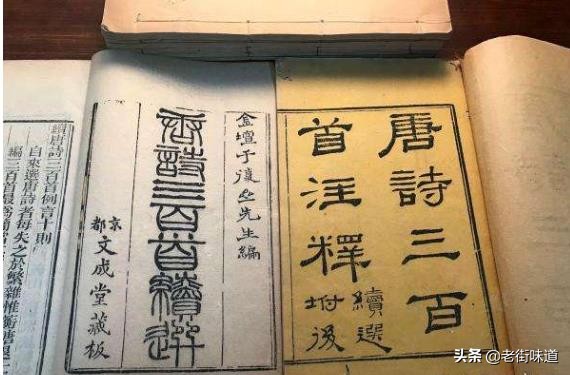 唐詩三百
首注釋
續選
坿後
金壇于復之先生編
唐詩三百首續選
京都
文成堂藏板
續唐詩三百首例言十則
自來選唐詩者每失之於繁雜惟蘅塘退
編三百首最為簡
头条 @老街味道